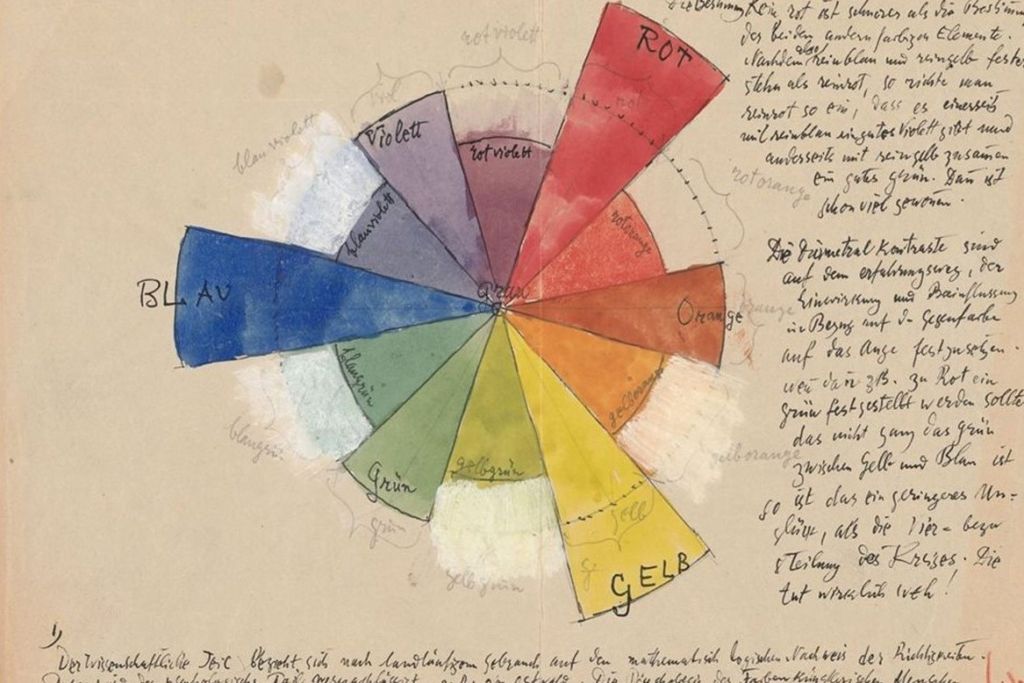 Kein rot ist schwerer als die Bestimm
der beiden andern farbigen Elemente.
Nachdem also reinblau und reingelb fester
stehn als reinrot, so richte man
reinrot so ein, dass es einerseits
mit reinblau ein gutes Violett gibt und
anderseits mit reingelb zusammen
ein gutes grün. Dan ist
schon viel gewonen.
Die Diametral Kontraste sind
auf dem erfahrungsweg, der
Einwirkung und Beeinflussung
in Bezug auf d Gegenfarbe
auf das Auge festzusetzen.
wen dan zB. zu Rot ein
grün festgestellt werden sollte
das nicht ganz das grün
zwischen Gelb und Blau ist
so ist das ein geringeres Un-
glück, als die Vier
teilung des Kreises. Die
tut wirklich weh!
rotviolett
ROT
rot
Violett
rotviolett
blauviolett
blauviolett
rotorange
rotorange
BLAU
Grau
Orange
orange
blaugrün
gelborange
gelborange
blaugrün
Grün
grün
gelbgrün
gelbgrün
gelb
GELB
1)
Der Wissenschaftliche Teil bezieht sich nach landläufigem gebrauch auf den mathematisch logischen Nachweis der Richtigkeiten.